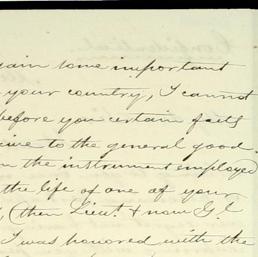 gain some important
your country, I cannot
before you certain facts
cive to the general good.
in the instrument employed
the life of one of your
(then Lieut. & now Gl
I was honored with the